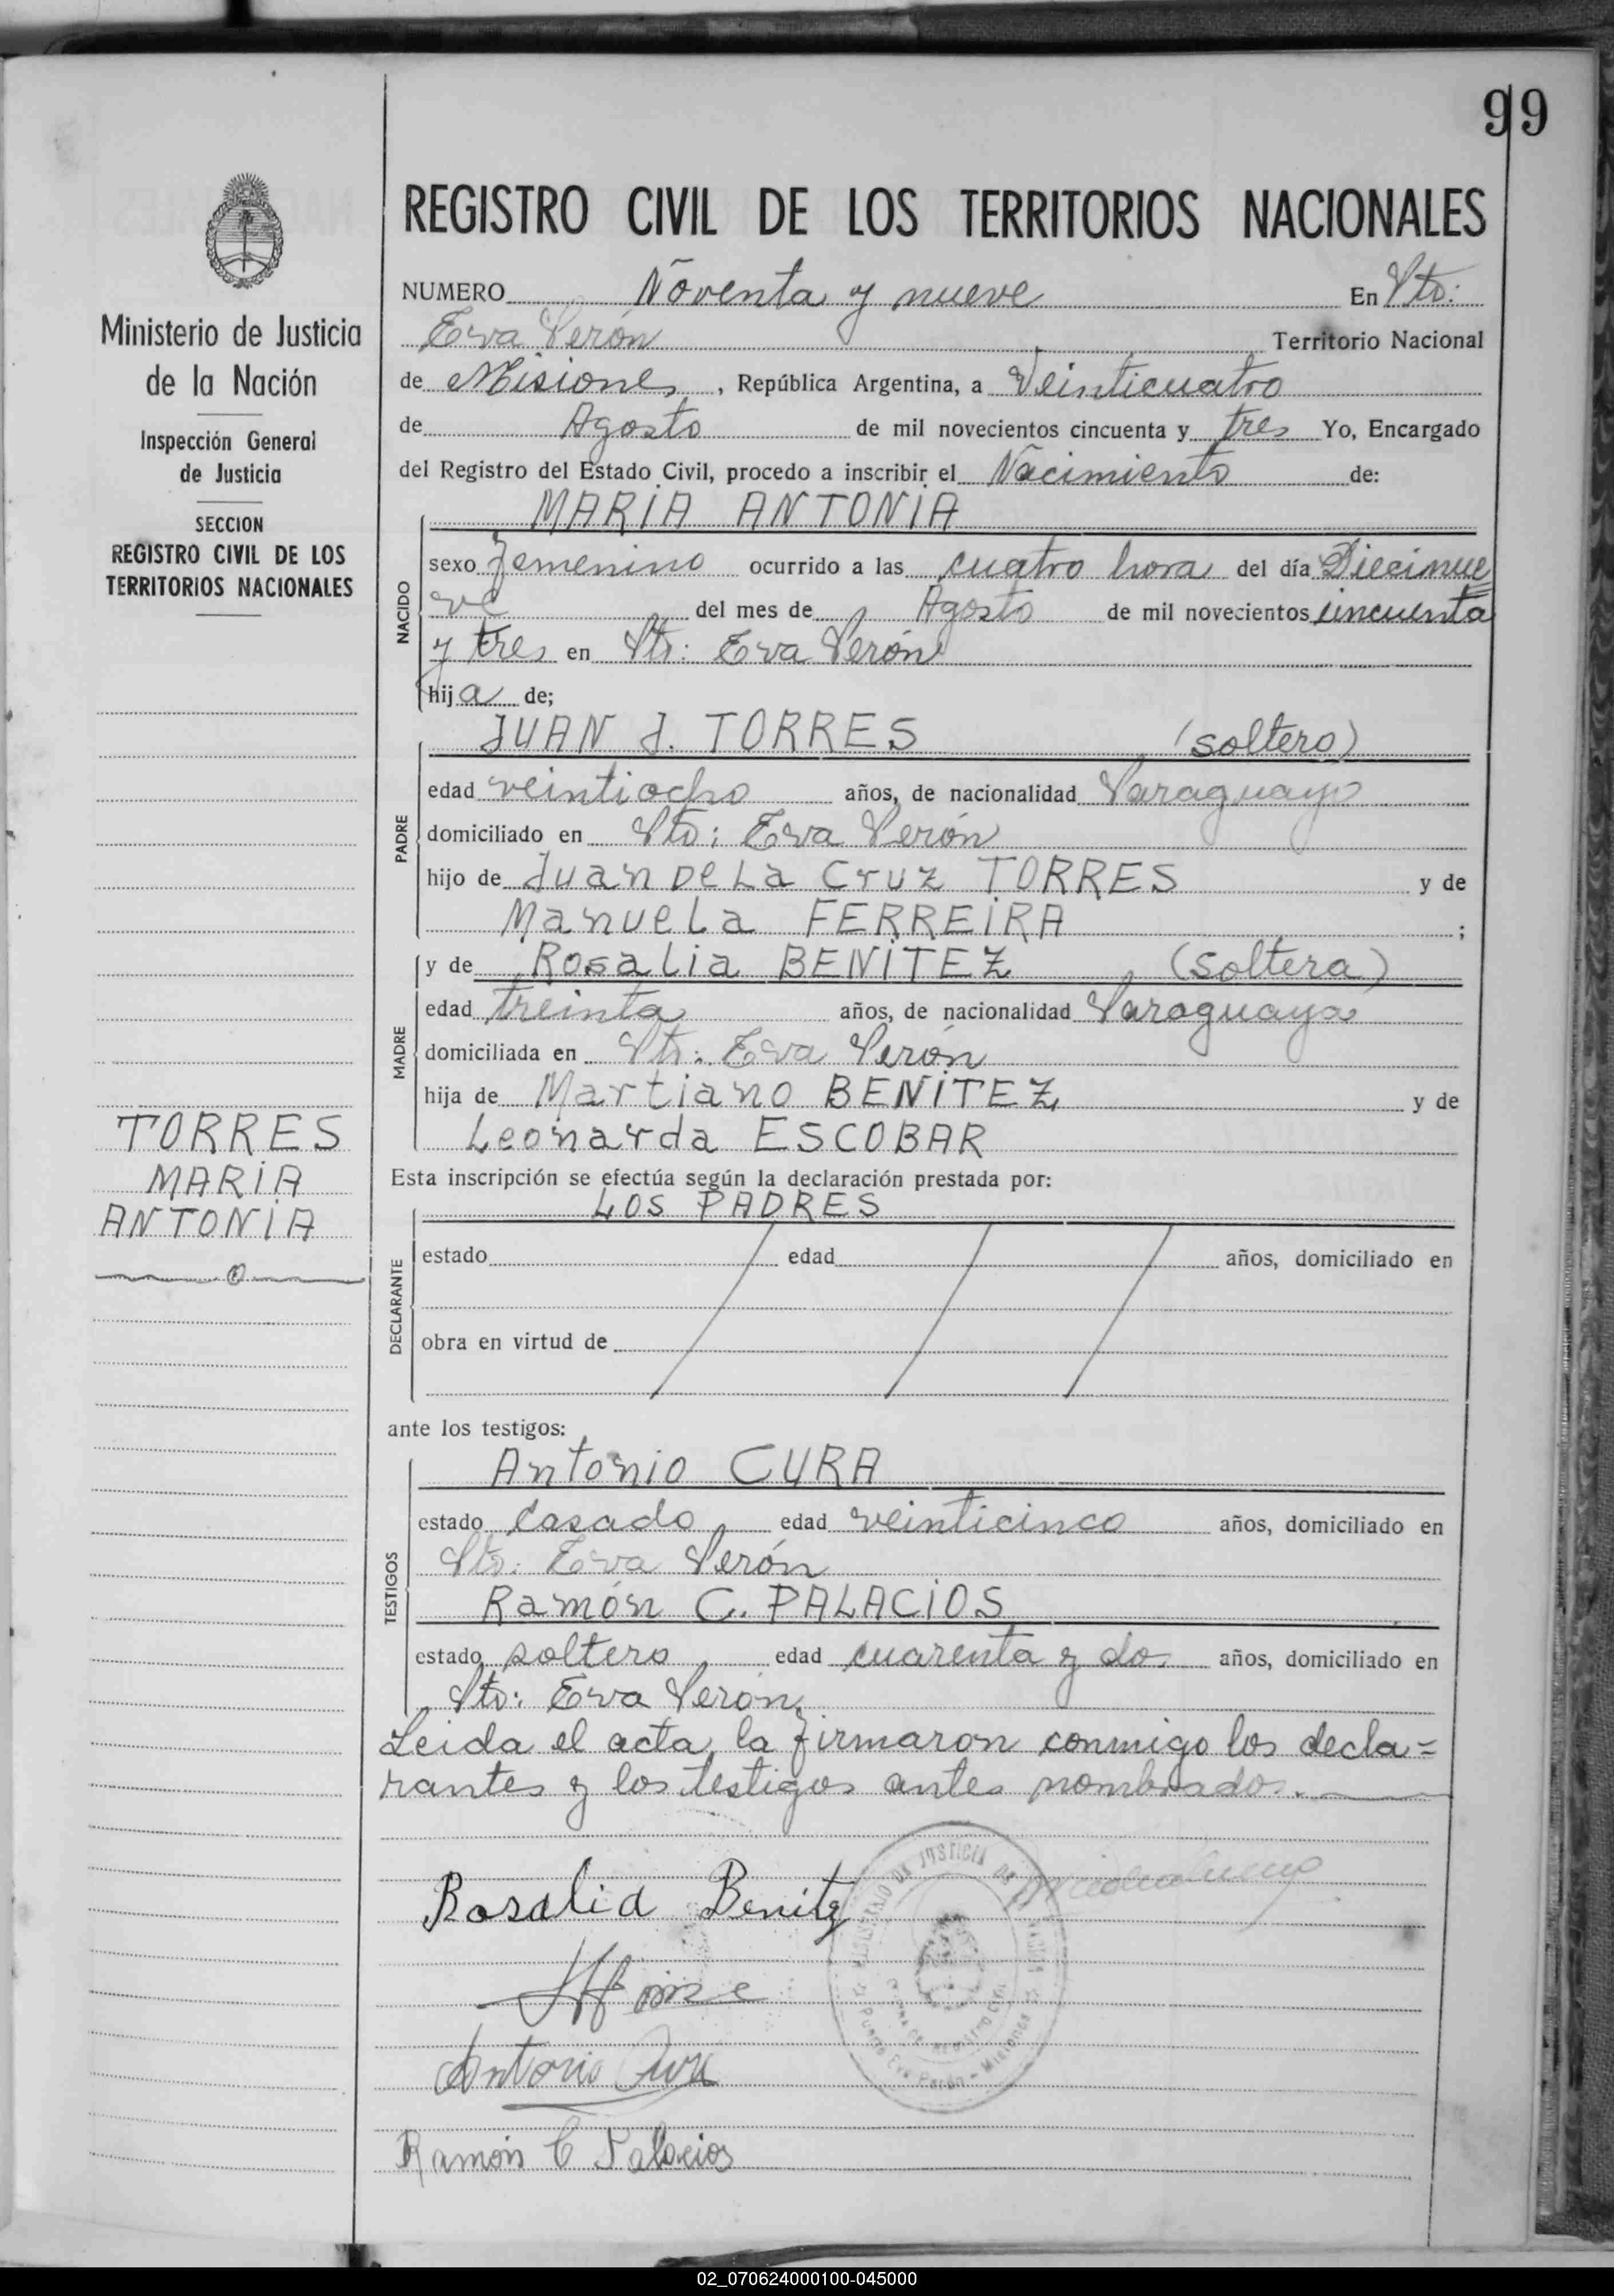 99
REGISTRO CIVIL DE LOS TERRITORIOS NACIONALES
Ministerio de Justicia
de la Nación
Inspección General
de Justicia
SECCION
REGISTRO CIVIL DE LOS
TERRITORIOS NACIONALES
TORRES
MARIA
ANTONIA
NUMERO Noventa y nueve En Pto:
Eva Perón Territorio Nacional
de Misiones, República Argentina, a Veinticuatro
de Agosto de mil novecientos cincuenta y tres Yo, Encargado
del Registro del Estado Civil, procedo a inscribir el Nacimiento de:
MARIA ANTONIA
NACIDO
sexo femenino ocurrido a las cuatro hora del día Diecinue
ve del mes de Agosto de mil novecientos cincuenta
y tres en Pto: Eva Perón
hija de;
JUAN J. TORRES (soltero)
PADRE
edad veintiocho años, de nacionalidad Paraguayo
domiciliado en Pto: Eva Perón
hijo de Juan De La Cruz TORRES y de
Manuela FERREIRA ;
y de Rosalia BENITEZ (soltera)
MADRE
edad treinta años, de nacionalidad Paraguaya
domiciliada en Pto: Eva Perón
hija de Martiano BENITEZ y de
Leonarda ESCOBAR
Esta inscripción se efectúa según la declaración prestada por:
LOS PADRES
DECLARANTE
estado edad años, domiciliado en
obra en virtud de
ante los testigos:
Antonio CURA
TESTIGOS
estado casado edad veinticinco años, domiciliado en
Pto: Eva Perón
Ramón C. PALACIOS
estado soltero edad cuarenta y do años, domiciliado en
Pto: Eva Peron.
Leida el acta, la firmaron conmigo los decla=
rantes y los testigos antes nombrados.
Rosalia Benitez
Antonio Cura
Ramón C Palacios
02_070624000100-045000